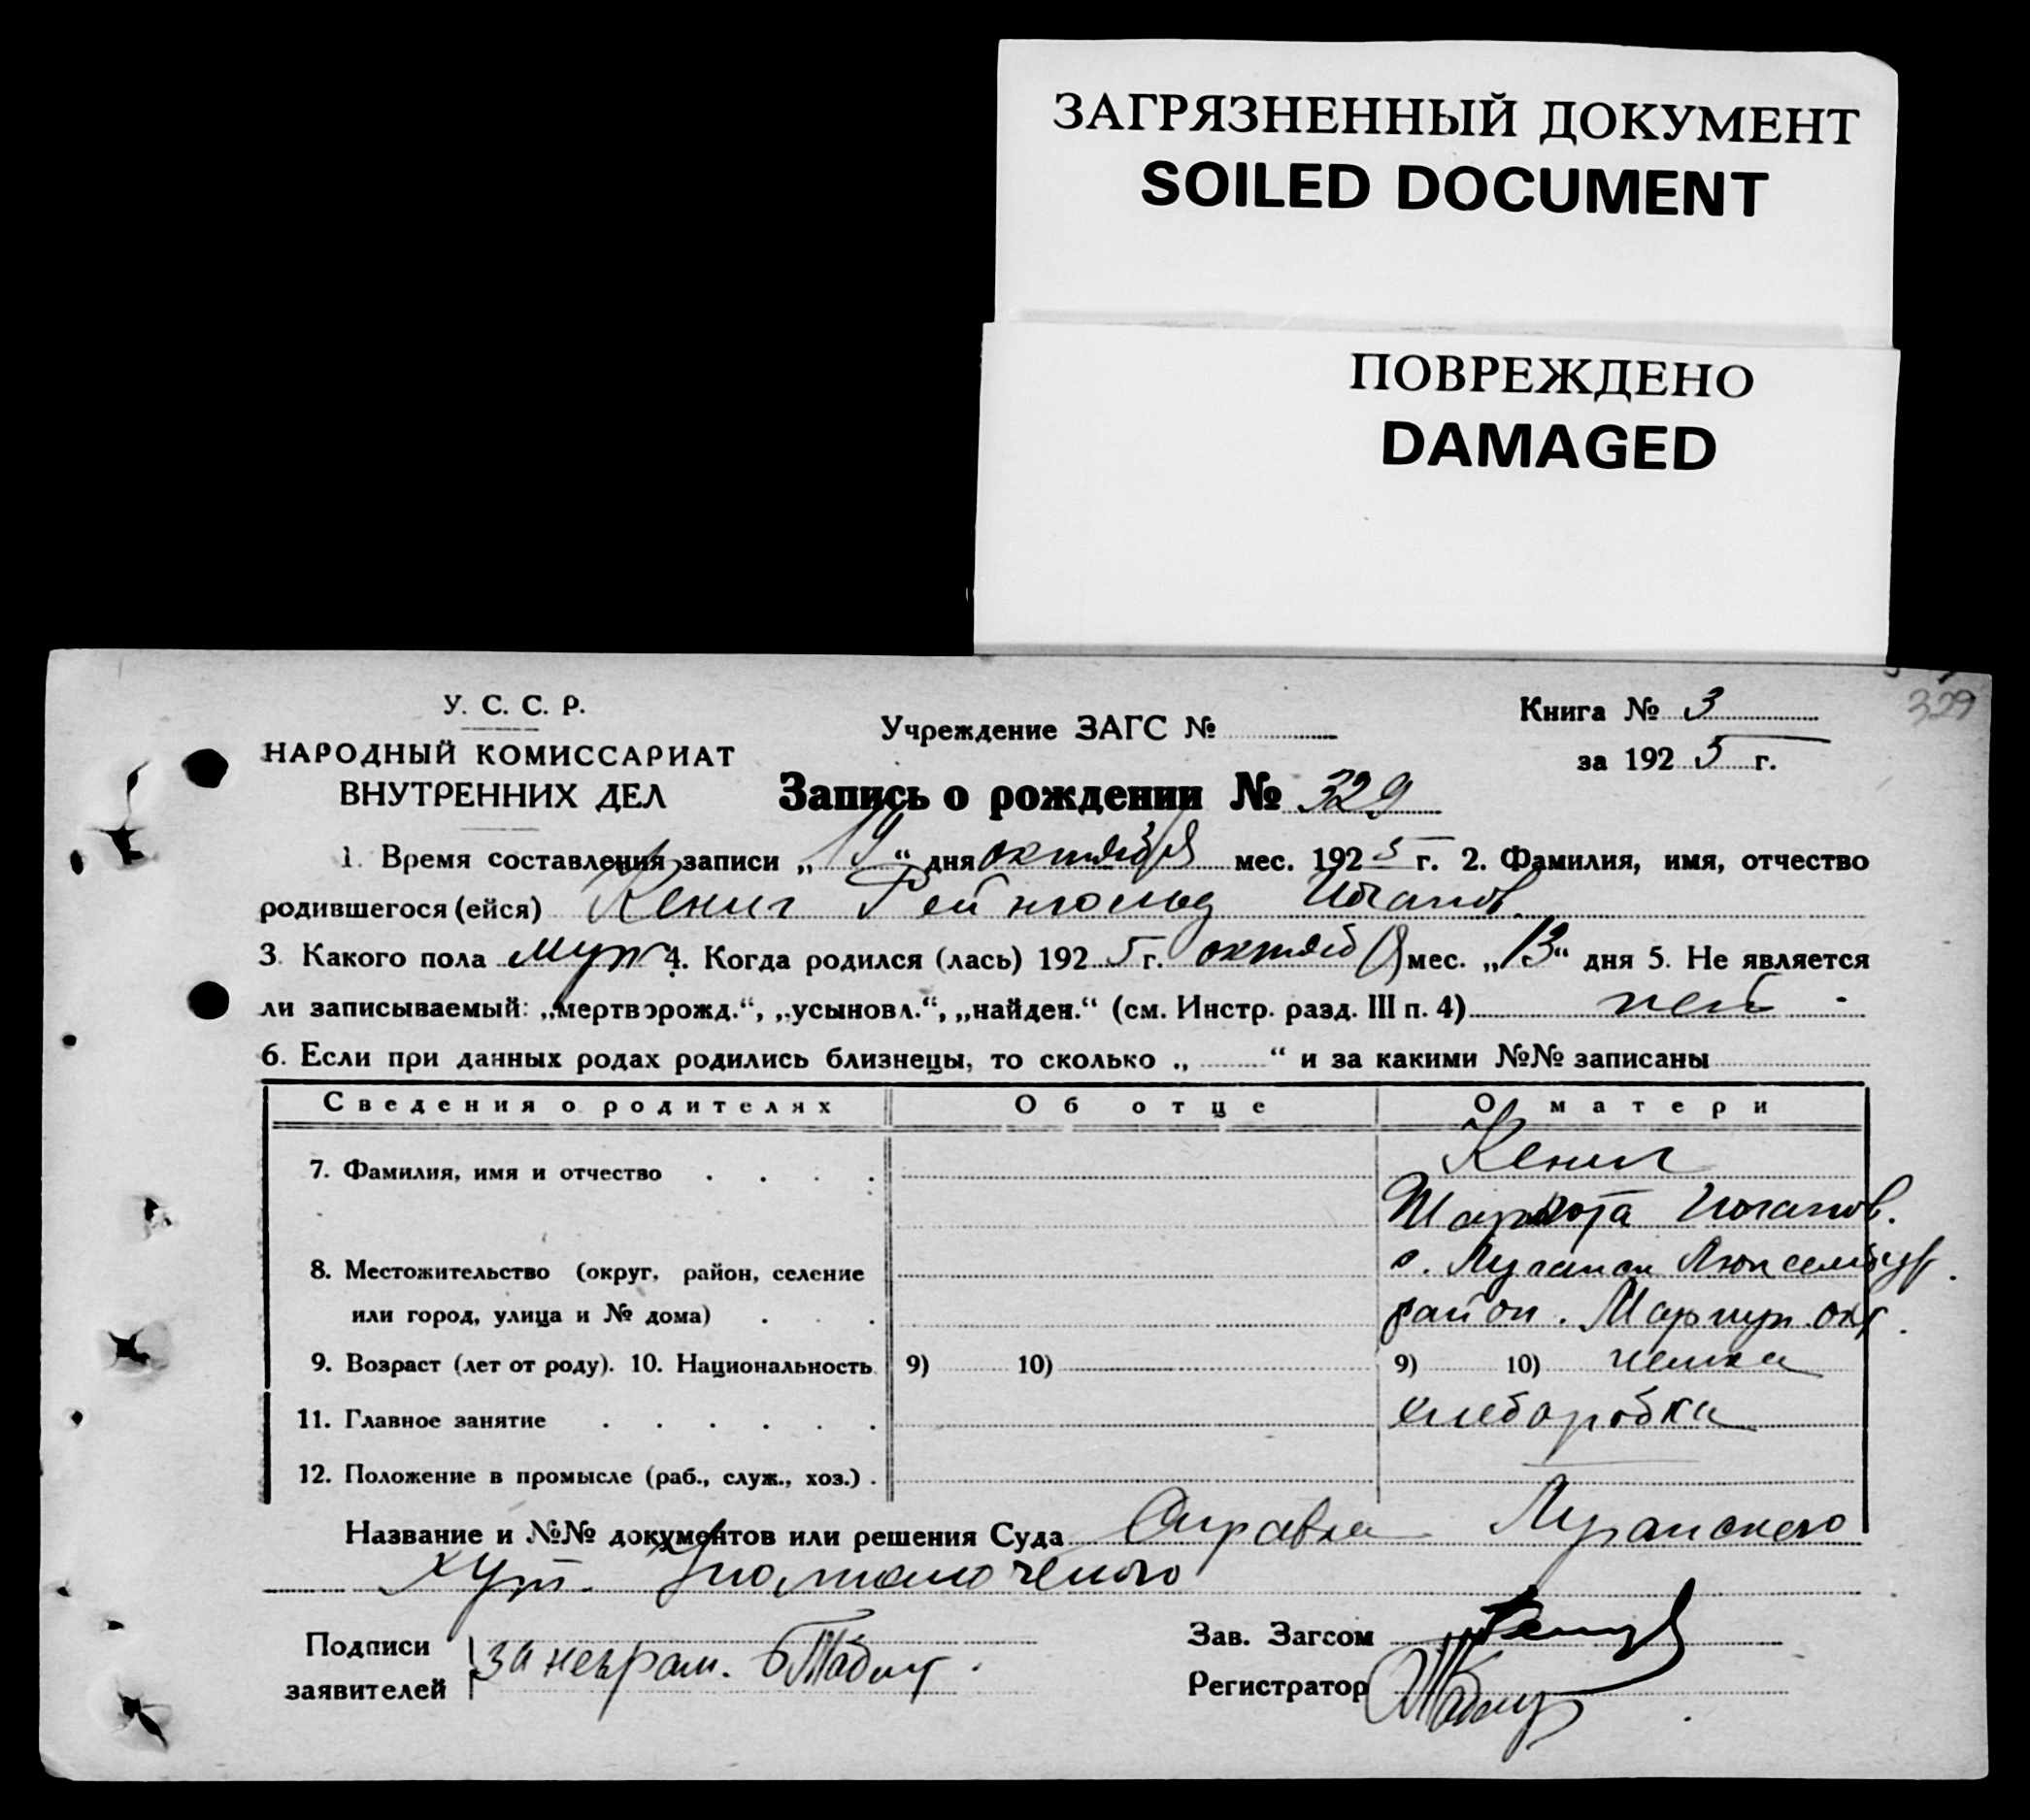 ЗАГРЯЗНЕННЫЙ ДОКУМЕНТ
SOILED DOCUMENT
ПОВРЕЖДЕНО
DAMAGED
329
У. С. С. Р.
НАРОДНЫЙ КОМИССАРИАТ
ВНУТРЕННИХ ДЕЛ
Учреждение ЗАГС №
Книга № 3
за 1925 г.
Запись о рождении № 329
1. Время составления записи „19“ дня октября мес. 1925 г. 2. Фамилия, имя, отчество
родившегося (ейся) Кениг Рейнгольд Иоганов.
3. Какого пола муж 4. Когда родился (лась) 1925 г. октяб(я) мес. „13“ дня 5. Не является
ли записываемый: „мертворожд.“, „усыновл.“, „найден.“ (см. Инстр. разд. III п. 4) нет -
6. Если при данных родах родились близнецы, то сколько „ “ и за какими №№ записаны
Сведения о родителях Об отце О матери
7. Фамилия, имя и отчество Кениг
Шарлота Иоганов.
8. Местожительство (округ, район, селение Люксембург.
или город, улица и № дома) район. Мариуп. окр.
9. Возраст (лет от роду). 10. Национальность 9) 10) 9) 10) немка
11. Главное занятие хлеборобка
12. Положение в промысле (раб., служ., хоз.)
Название и №№ документов или решения Суда Справка Луганского
хут. Уполномоченого
Подписи
заявителей за неграм.
Зав. Загсом
Регистратор